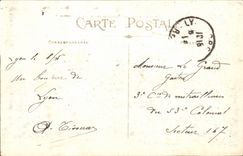 CARTE POSTALE
CORRESPONDANCE
Lyon le 8/5
Un bonjour de
Lyon
Monsieur Le Grand
3e Cie de mitrailleuses
du 53e Colonial
Secteur 167